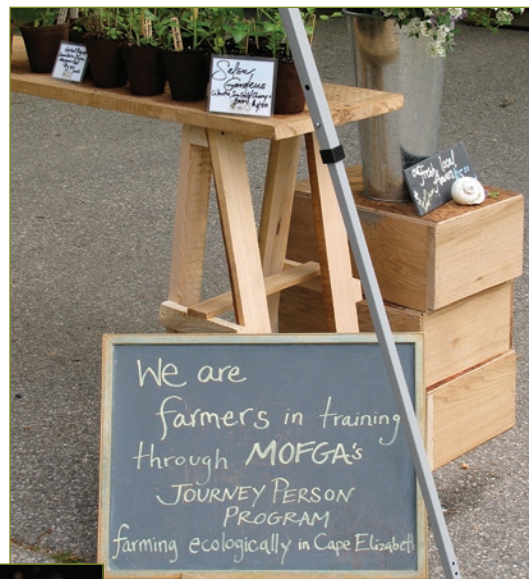 Salsa
Gardens
our fresh local
flowers
We are
farmers in training
through MOFGA's
JOURNEY PERSON
PROGRAM
farming ecologically in Cape Elizabeth